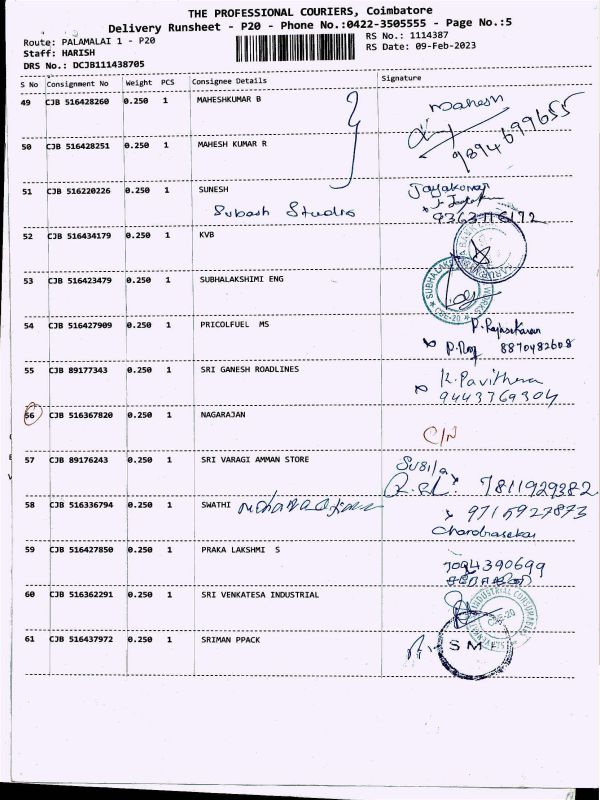 THE PROFESSIONAL COURIERS, Coimbatore
Delivery Runsheet - P20 - Phone No.:0422-3505555 - Page No.:5
Route: PALAMALAI 1 - P20
RS No.: 1114387
Staff: HARISH
RS Date: 09-Feb-2023
DRS No.: DCJB111438705
S No Consignment No Weight PCS Consignee Details Signature
49 CJB 516428260 0.250 1 MAHESHKUMAR B Mahesh
9894699655
50 CJB 516428251 0.250 1 MAHESH KUMAR R
51 CJB 516220226 0.250 1 SUNESH Jayakumar
Subash Studio
52 CJB 516434179 0.250 1 KVB
53 CJB 516423479 0.250 1 SUBHALAKSHIMI ENG
SUBHA LAKS WORKS CBE-20
54 CJB 516427909 0.250 1 PRICOLFUEL MS P. Rajasekaran
8870482608
55 CJB 89177343 0.250 1 SRI GANESH ROADLINES K. Pavithra
9443769304
56 CJB 516367820 0.250 1 NAGARAJAN
C/N
57 CJB 89176243 0.250 1 SRI VARAGI AMMAN STORE Susila
7811929382
58 CJB 516336794 0.250 1 SWATHI
9715927873
Chandrasekar
59 CJB 516427850 0.250 1 PRAKA LAKSHMI S
7094390699
60 CJB 516362291 0.250 1 SRI VENKATESA INDUSTRIAL
61 CJB 516437972 0.250 1 SRIMAN PPACK
SM